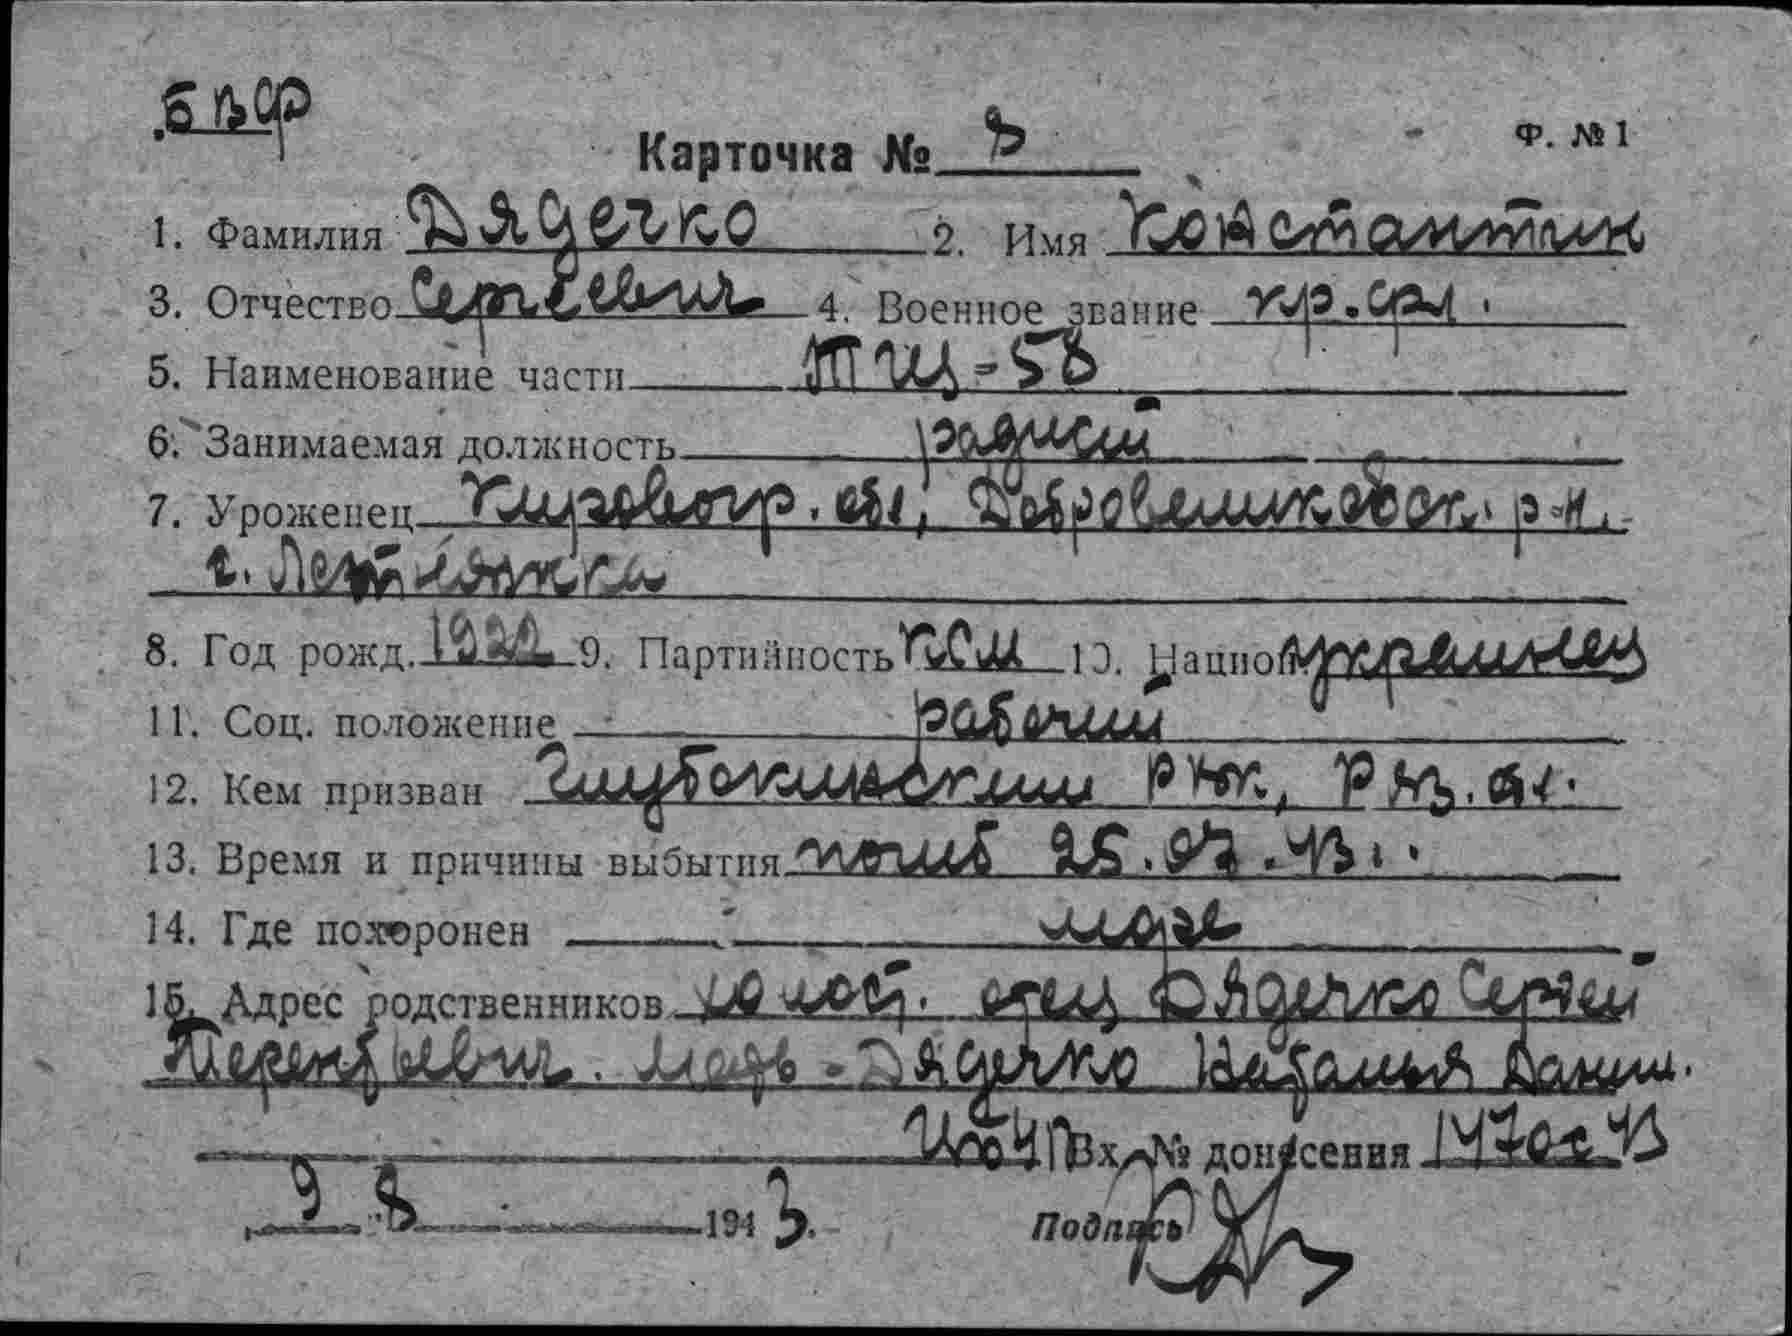 БВФ
Карточка № 8 Ф. № 1
1. Фамилия Дядечко 2. Имя Константин
3. Отчество Сергеевич 4. Военное звание кр.фл.
5. Наименование части ТЩ-58
6. Занимаемая должность радист
7. Уроженец Кировогр. обл, р-н.
г.
8. Год рожд. 1922 9. Партийность КСМ 10. Национ. украинец
11. Соц. положение рабочий
12. Кем призван Глубокинским РВК, обл.
13. Время и причины выбытия погиб 25.07.43г.
14. Где похоронен море
15. Адрес родственников холост. отец Дядечко Сергей
Терентьевич. Мать - Дядечко Наталья Данил.
Вх. № донесения 1470с 43
9 8 1943.
Подпись